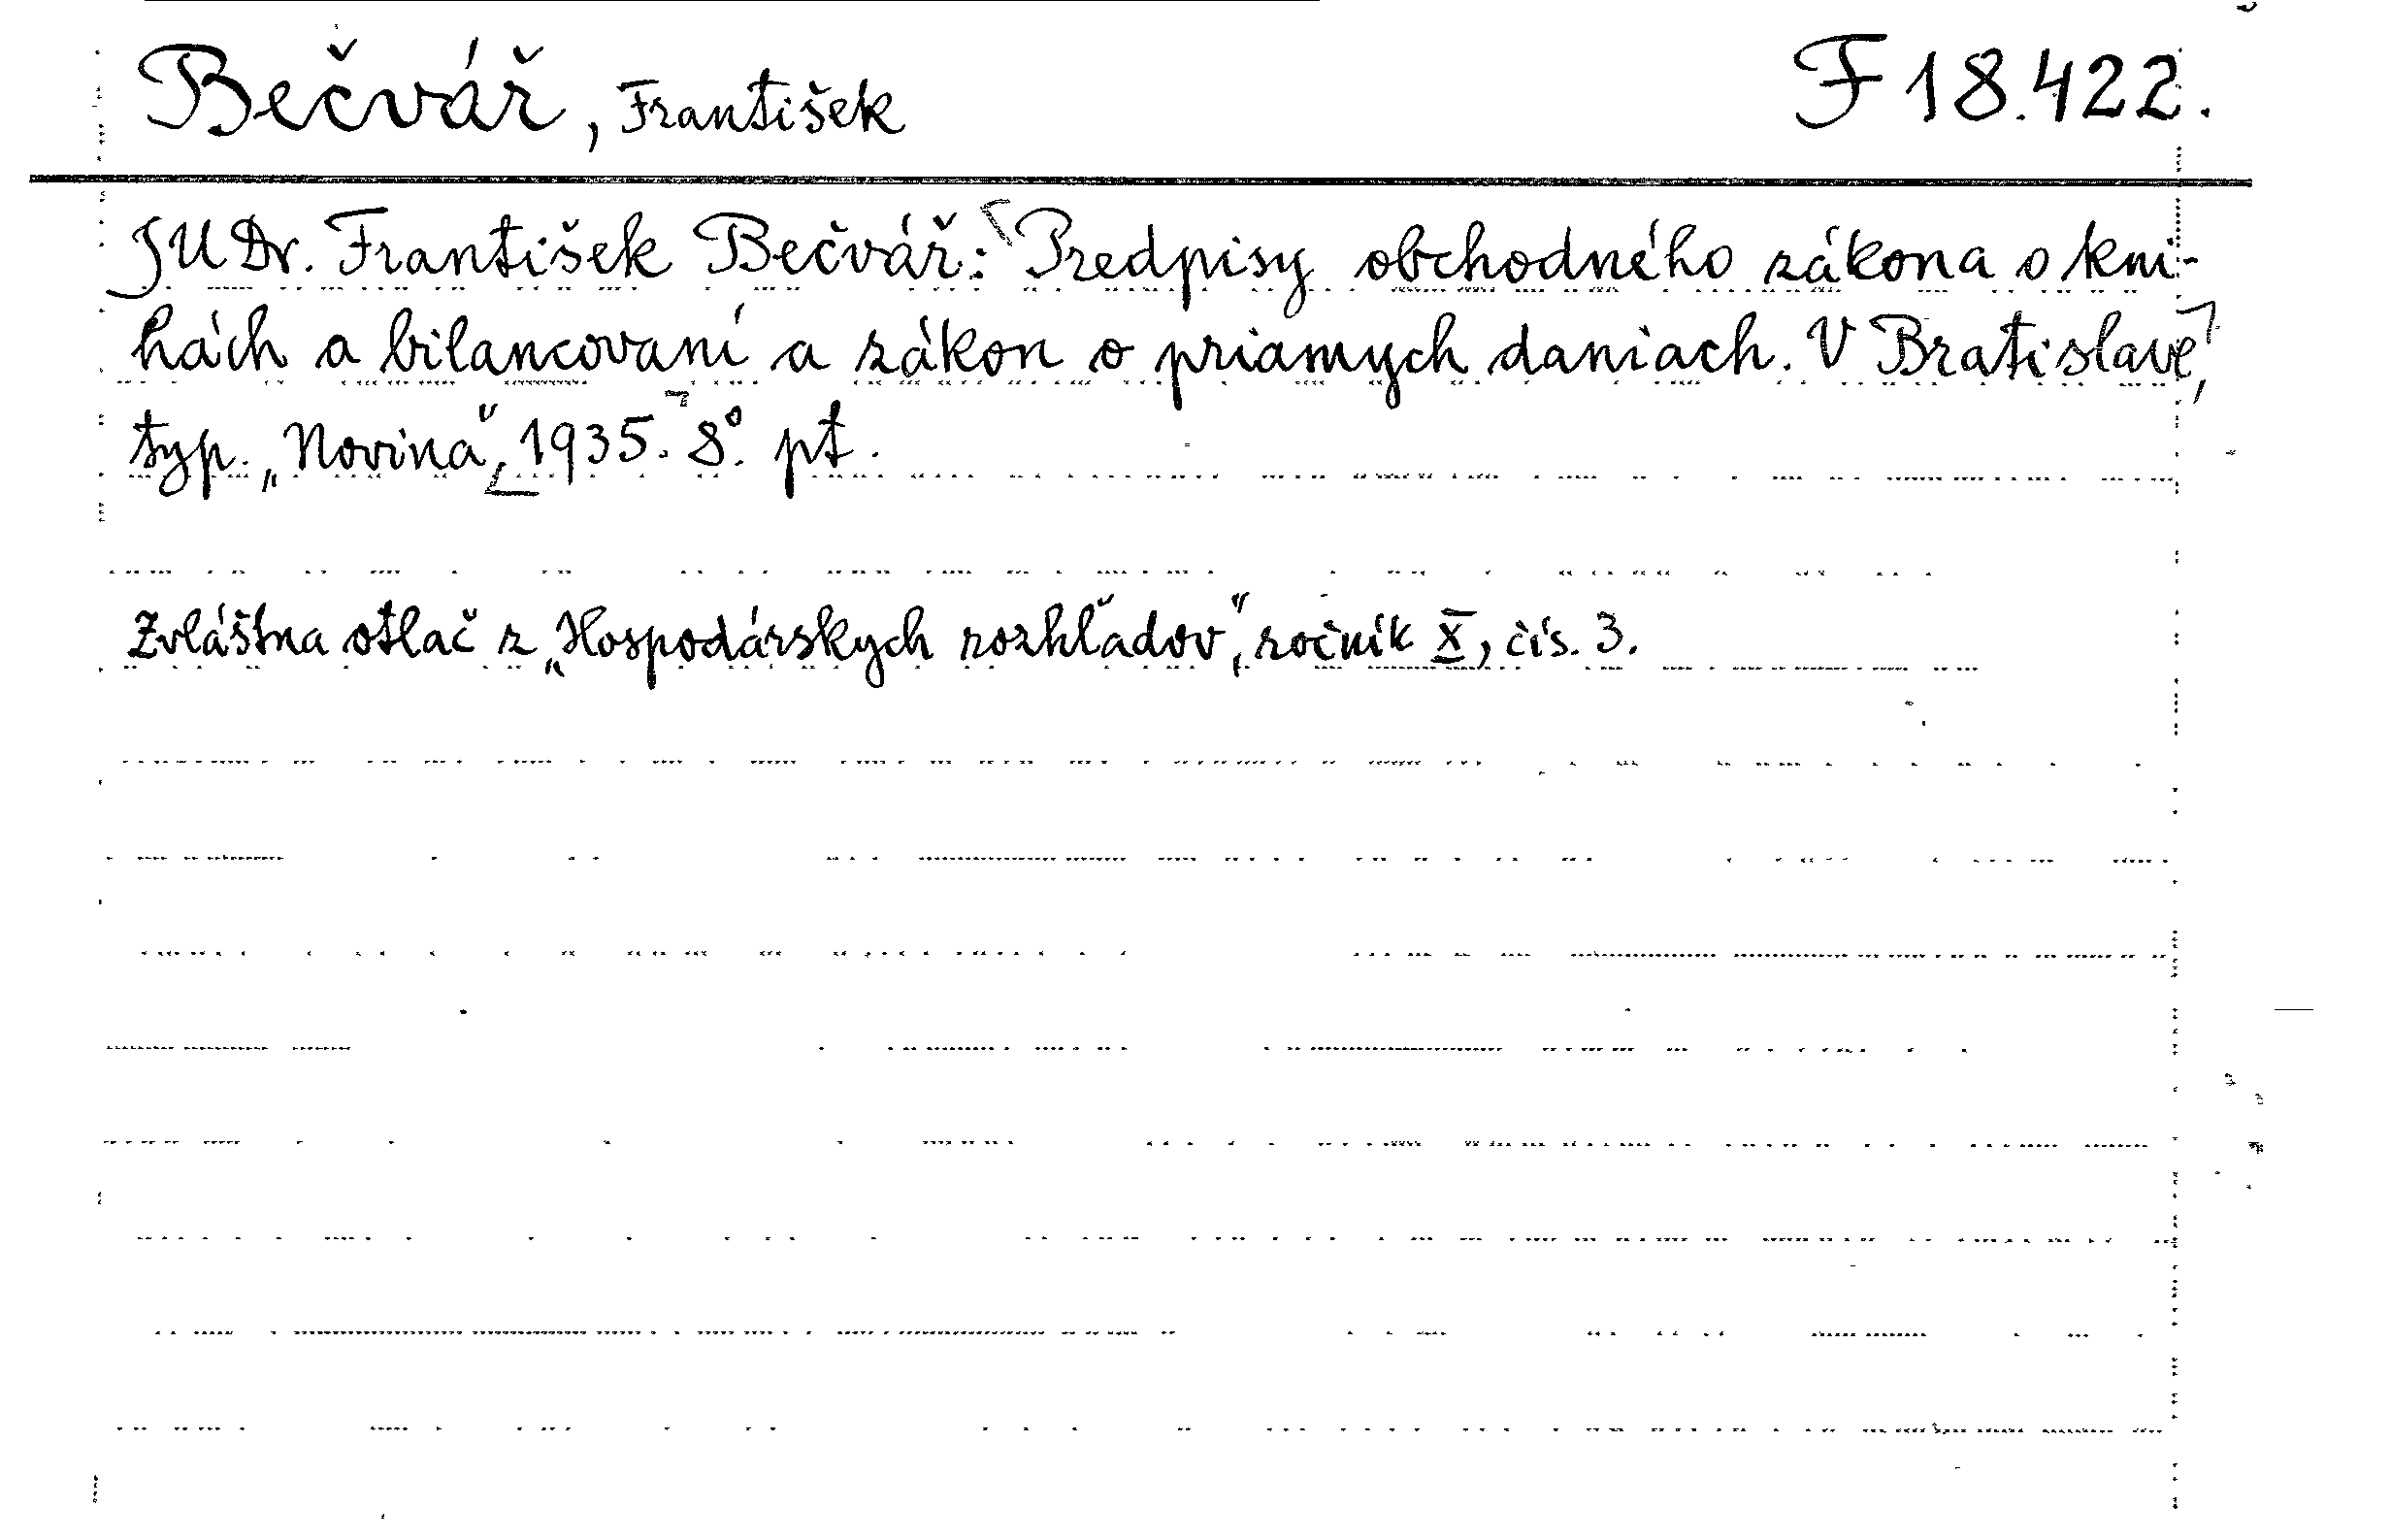 Bečvář, František F 18.422.
JUDr. František Bečvář: Predpisy obchodného zákona o kni-
hách a bilancovaní a zákon o priamych daniach. V Bratislave,
typ. „Novina“, 1935. 8°. pt.
Zvláštna otlač z „Hospodárskych rozhľadov“, ročník X, čís. 3.